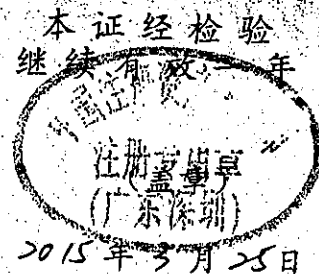 本证经检验
继续有效一年
注册专用章
(盖章)
(广东深圳)
2015年3月25日